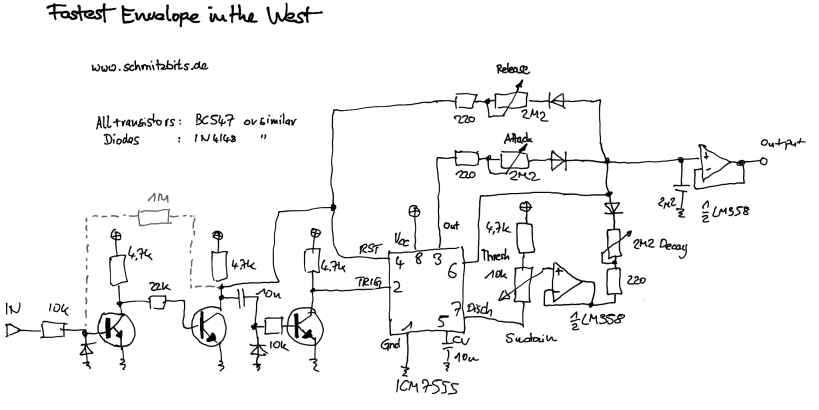 Fastest Envelope in the West
www.schmitzbits.de
All transistors: BC547 or similar
Diodes : 1N4148 "
Release
220
2M2
Attack
220
2M2
Output
2M2
½ LM358
1M
4,7k
4,7k
4,7k
Vcc
Out
RST
4
8
3
6
Thresh
4,7k
10k
2M2 Decay
220
IN
10k
22k
10n
10k
TRIG
2
7
Disch
½ LM358
Sustain
Gnd
1
5
CV
10n
ICM7555